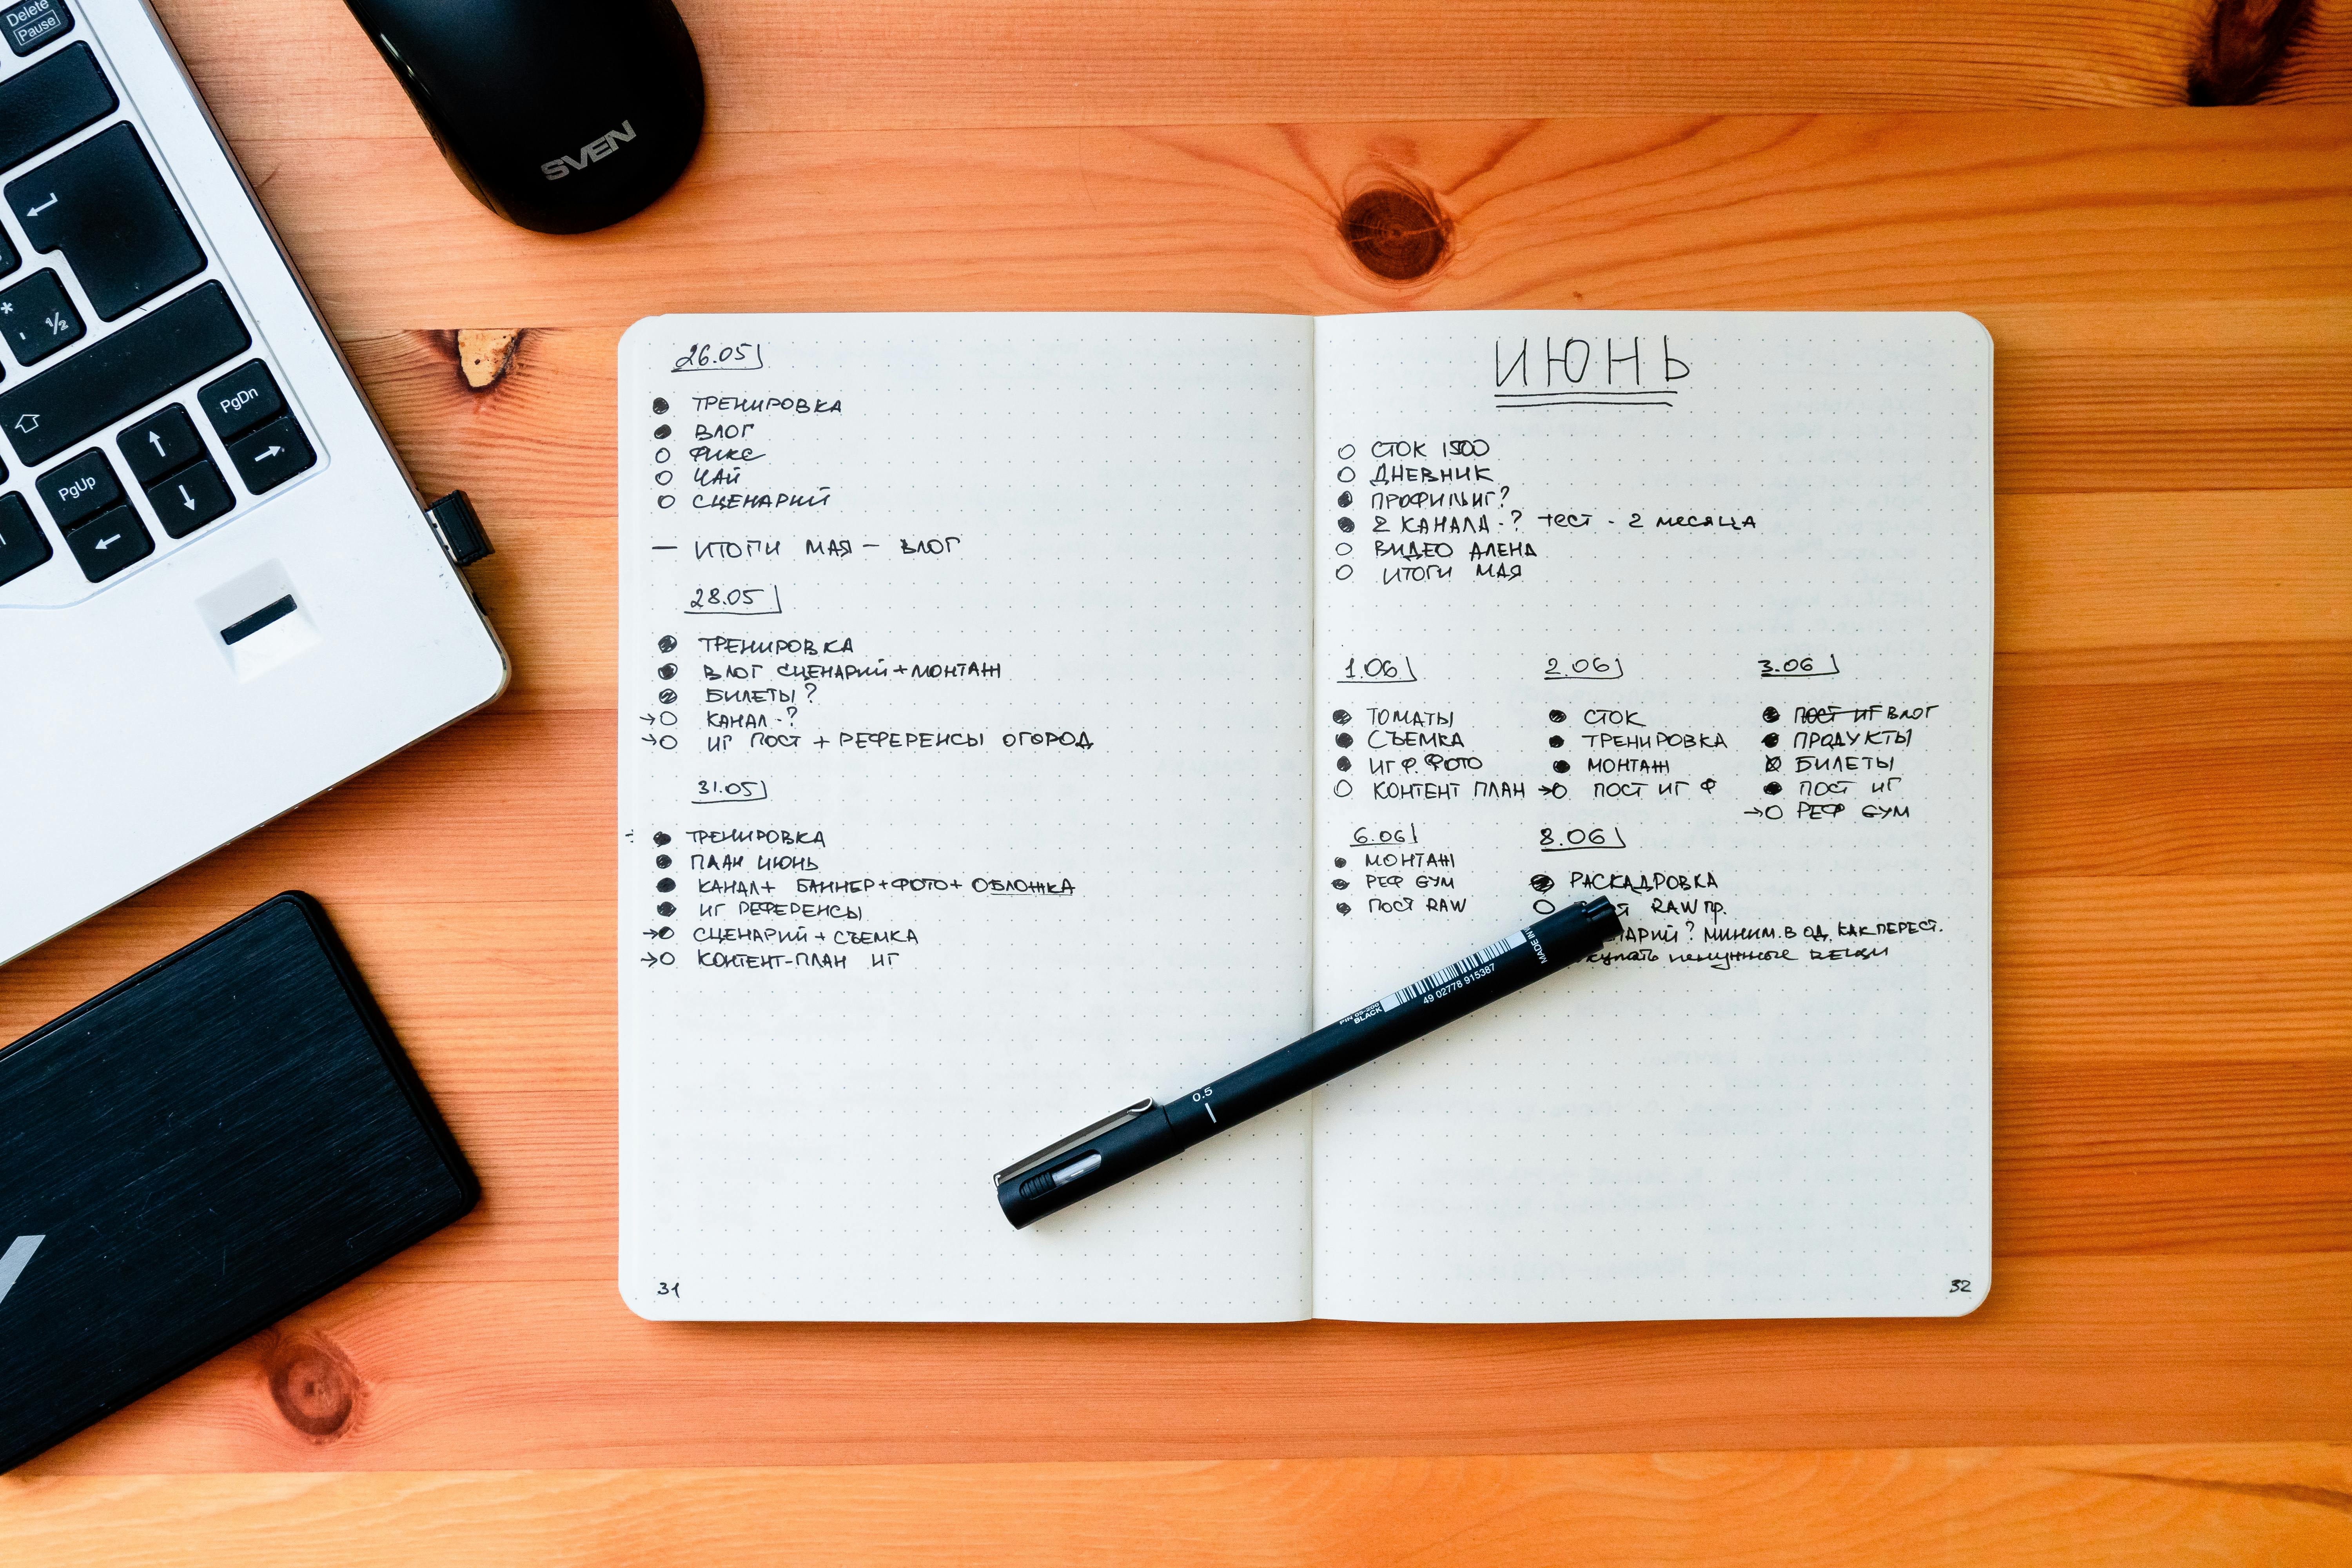 Delete
Pause
½
PgDn
PgUp
SVEN
26.05
ТРЕНИРОВКА
ВЛОГ
ФИКС
ЧАЙ
СЦЕНАРИЙ
— ИТОГИ МАЯ — ВЛОГ
28.05
ТРЕНИРОВКА
ВЛОГ СЦЕНАРИЙ+МОНТАЖ
БИЛЕТЫ?
→ КАНАЛ-?
→ ИГ ПОСТ + РЕФЕРЕНСЫ ОГОРОД
31.05
ТРЕНИРОВКА
ПЛАН ИЮНЬ
КАНАЛ+ БАННЕР+ФОТО+ ОБЛОЖКА
ИГ РЕФЕРЕНСЫ
→ СЦЕНАРИЙ + СЪЕМКА
→ КОНТЕНТ-ПЛАН ИГ
31
ИЮНЬ
СТОК 1500
ДНЕВНИК
ПРОФИЛЬ ИГ?
2 КАНАЛА-? ТЕСТ - 2 МЕСЯЦА
ВИДЕО АЛЕНА
ИТОГИ МАЯ
1.06
ТОМАТЫ
СЪЕМКА
ИГ Ф. ФОТО
КОНТЕНТ ПЛАН
2.06
СТОК
ТРЕНИРОВКА
МОНТАЖ
→ ПОСТ ИГ Ф
3.06
ПОСТ ИГ ВЛОГ
ПРОДУКТЫ
БИЛЕТЫ
ПОСТ ИГ
→ РЕФ GYM
6.06
МОНТАЖ
РЕФ GYM
ПОСТ RAW
8.06
РАСКАДРОВКА
RAW ПР.
? МИНИМ. В ОД. КАК ПЕРЕСТ.
ненужные вещи
32
0.5
BLACK
49 02778 915387
MADE IN